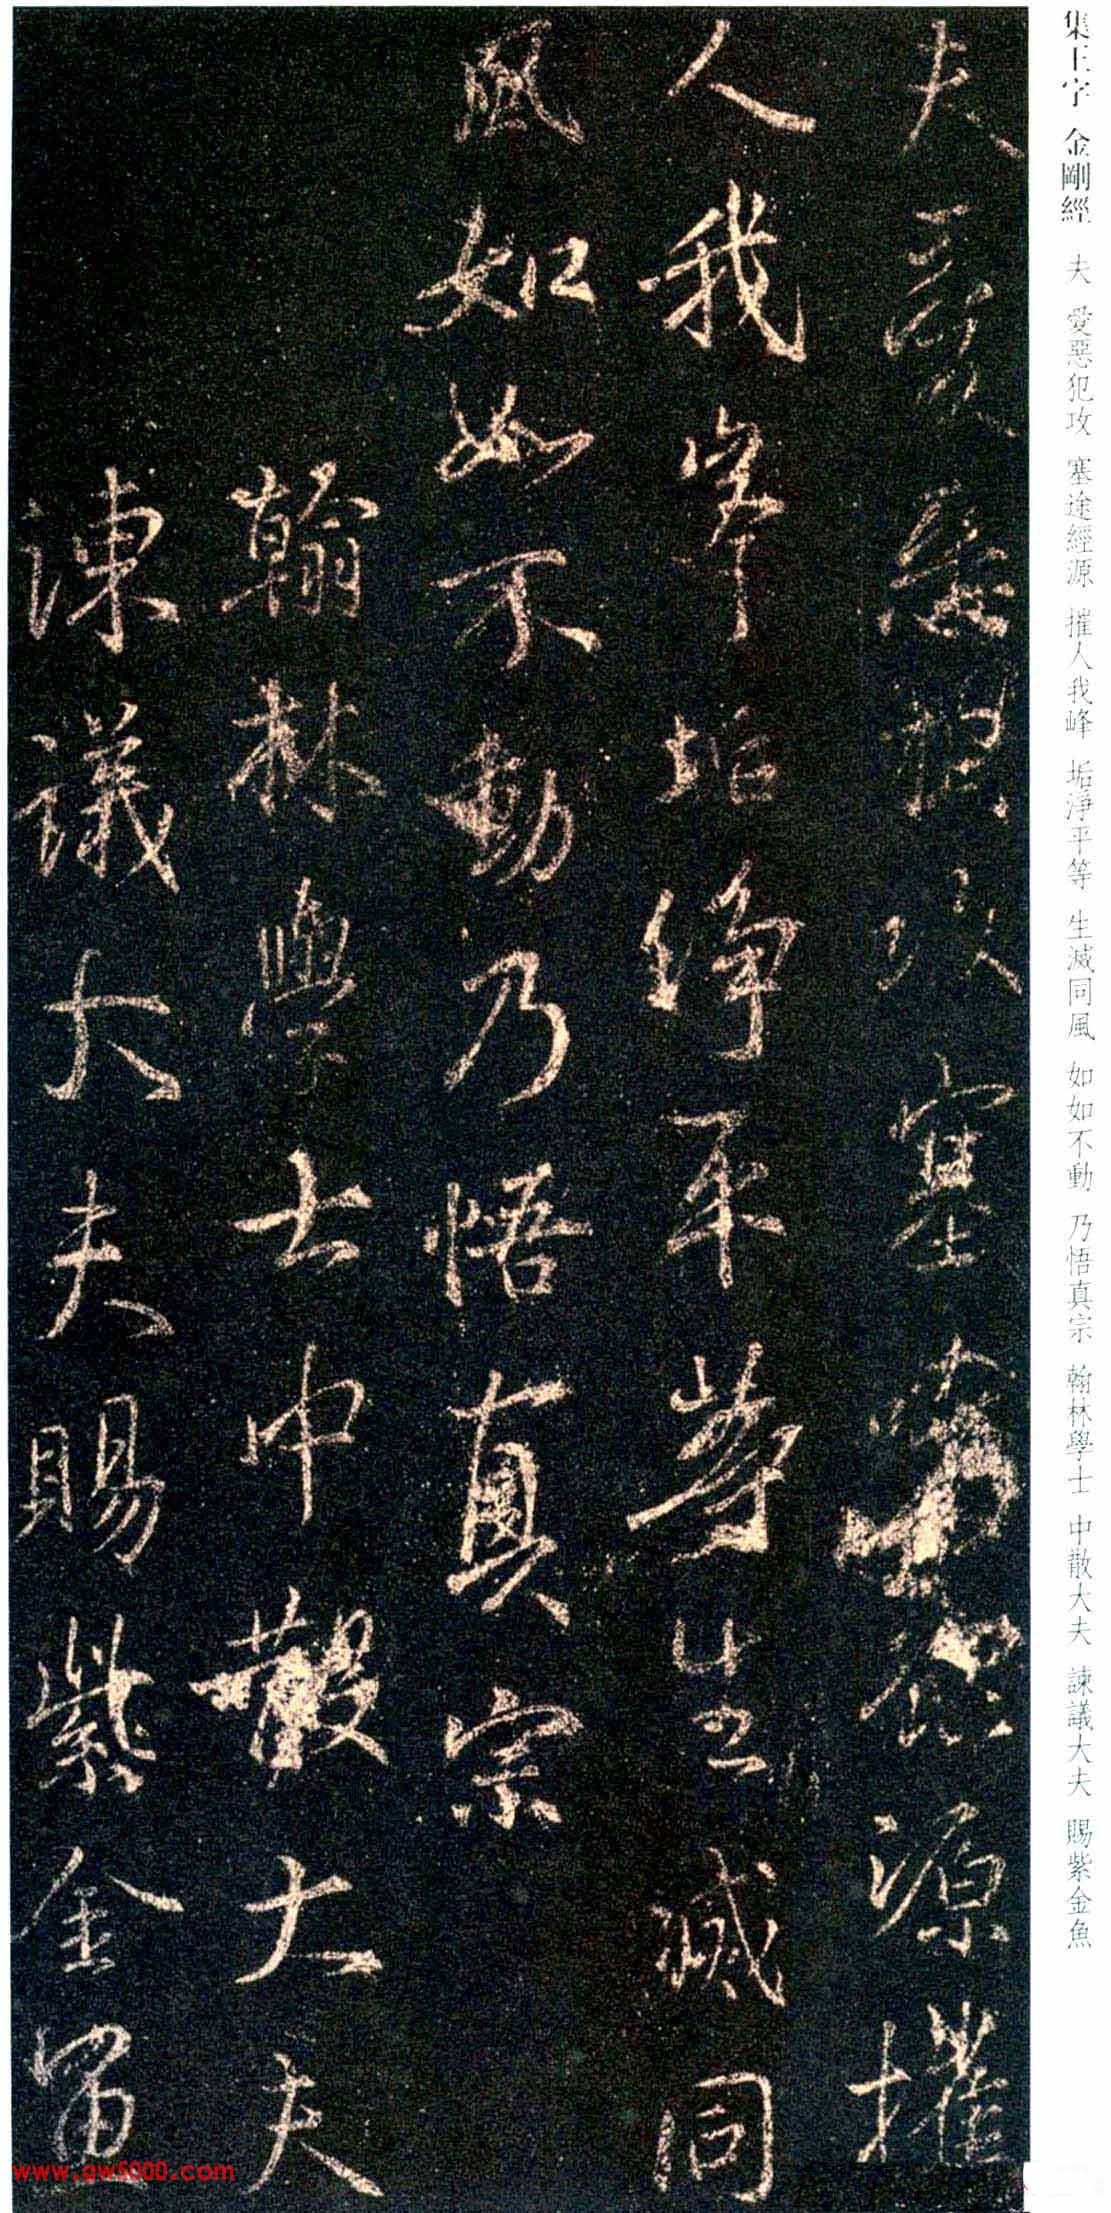 集王字 金剛經 夫 愛惡犯攻 塞途經源 摧人我峰 垢淨平等 生滅同風 如如不動 乃悟真宗 翰林學士 中散大夫 諫議大夫 賜紫金魚
夫愛惡犯攻塞途經源摧
人我峯垢淨平等生滅同
風如如不動乃悟真宗
翰林學士中散大夫
諫議大夫賜紫金魚
www.gw5000.com